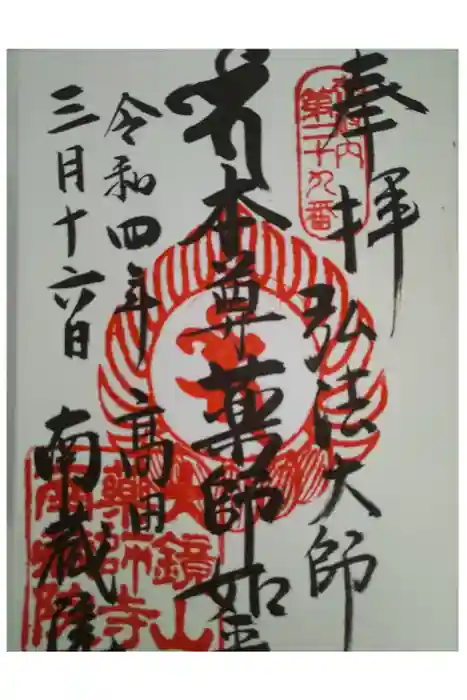 奉拝
御府内
第二十九番
弘法大師
本尊薬師如来
令和四年 高田
三月十六日 南蔵院
大鏡山
藥師寺